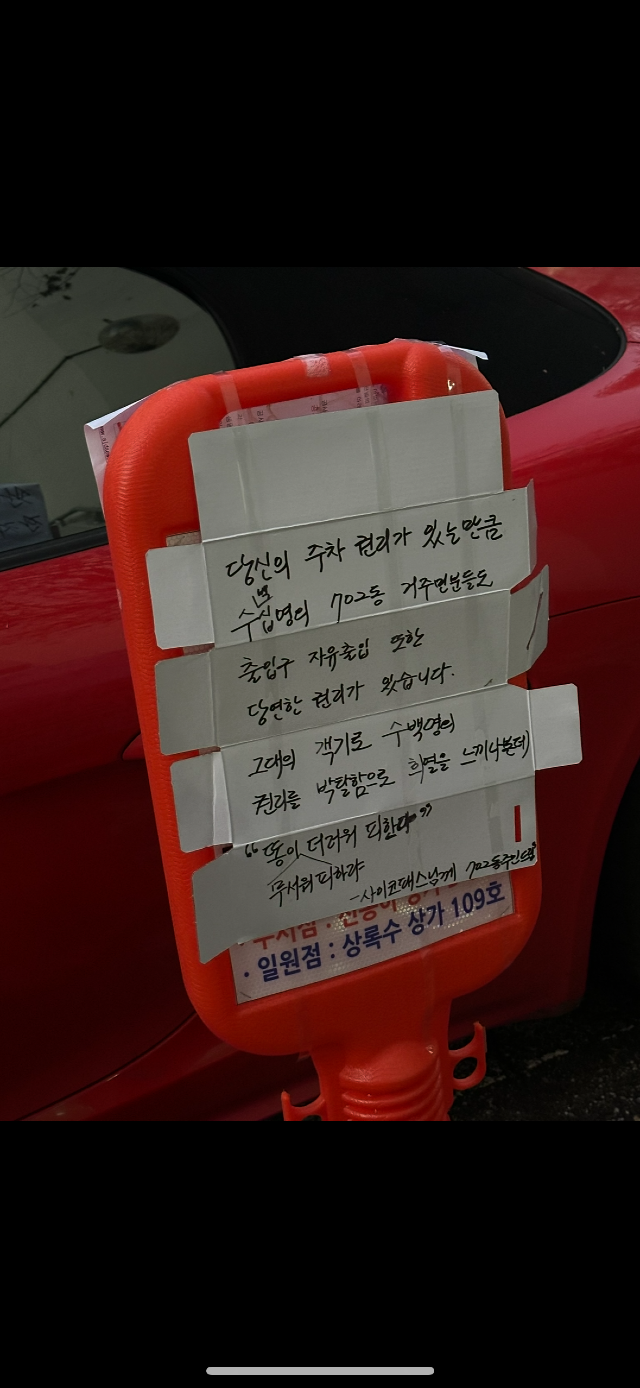 당신의 주차 권리가 있는만큼
수십명의 702동 거주민분들도
출입구 자유출입 또한
당연한 권리가 있습니다.
그대의 객기로 수백명의
권리를 박탈함으로 희열을 느끼나본데
"똥이 더러워 피한다"
무서워 피하랴
-사이코패스님께 702동주민드림
· 일원점 : 상록수 상가 109호